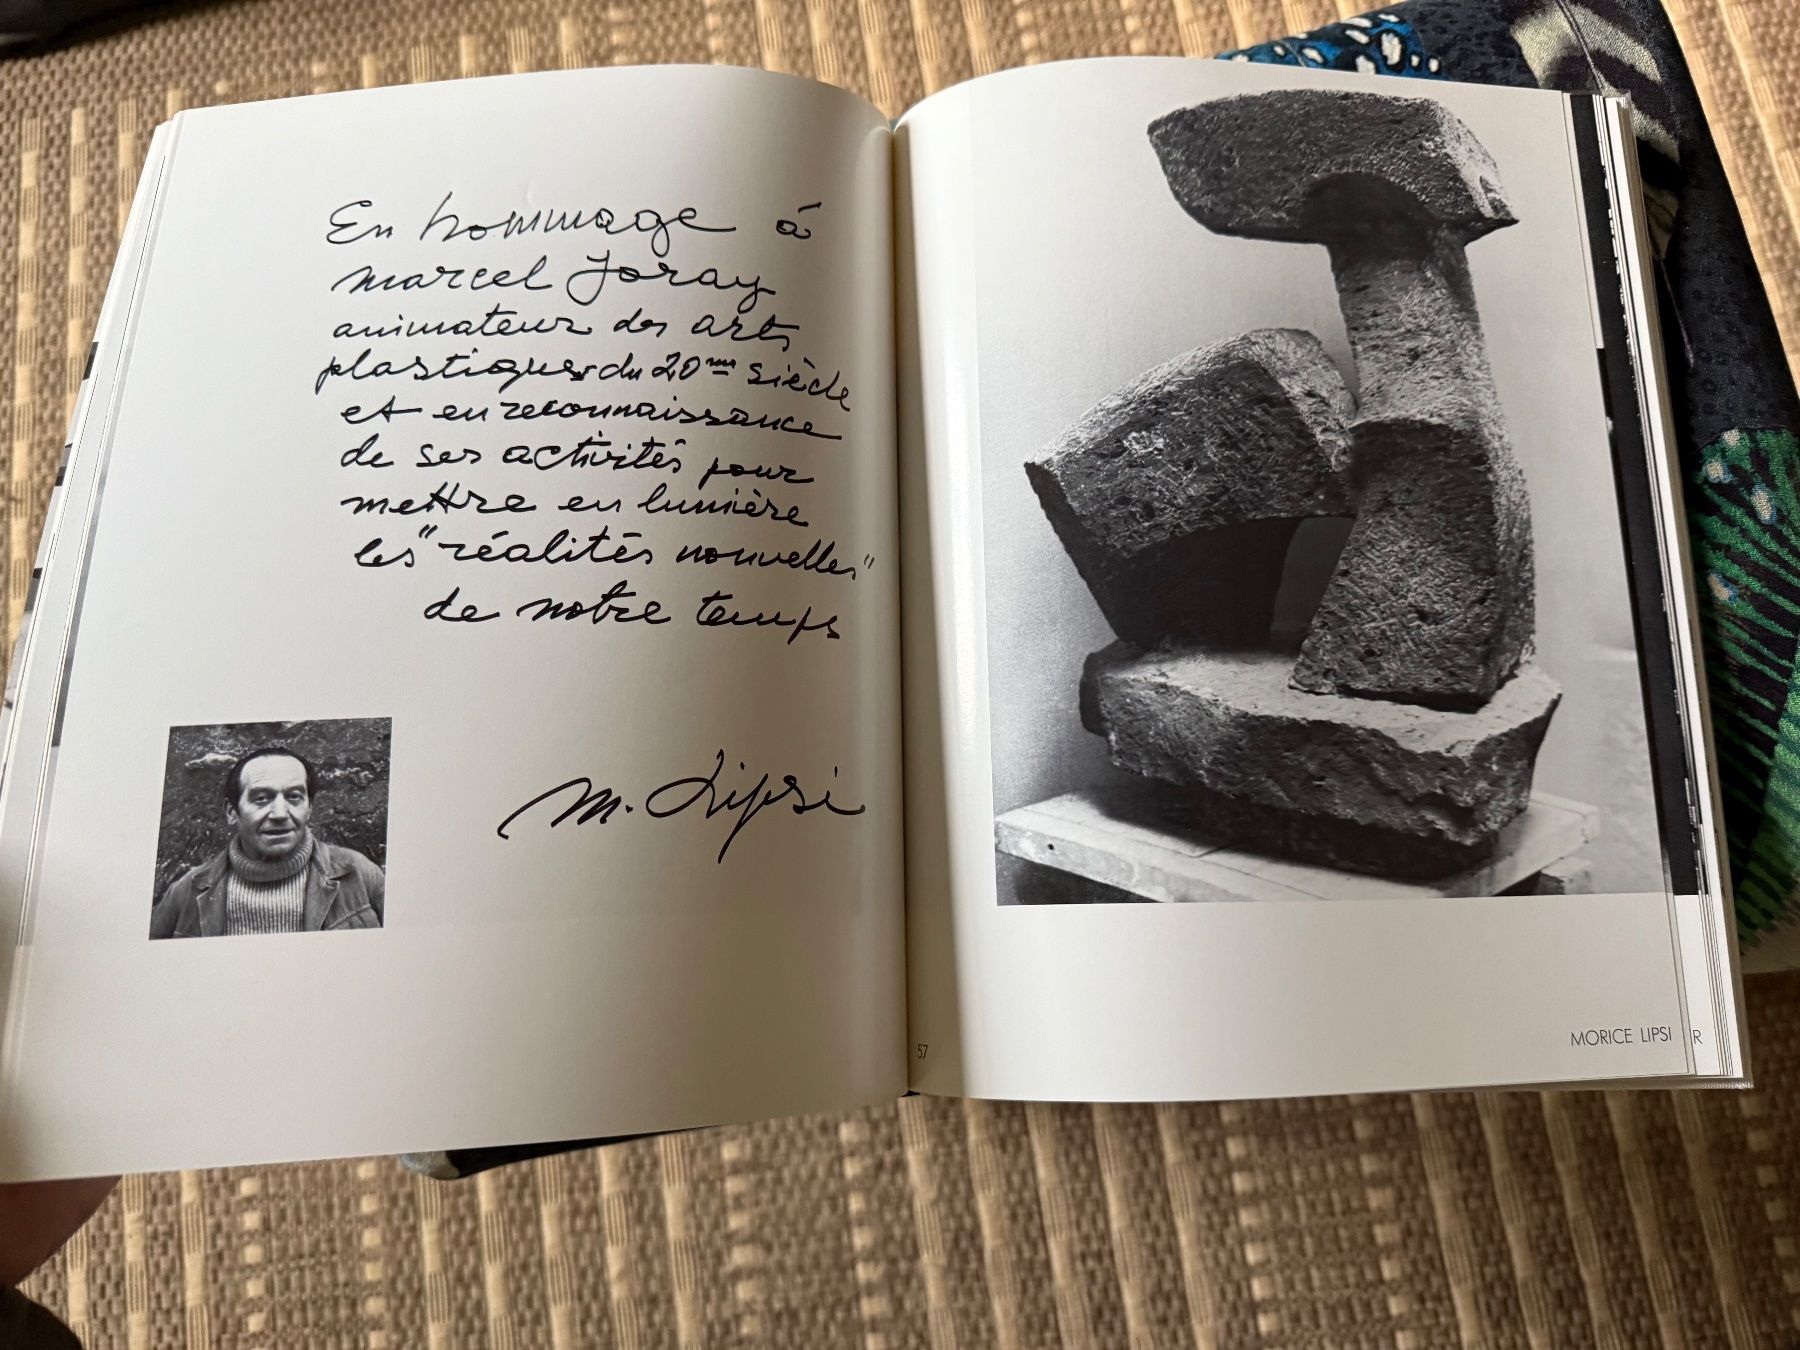 En hommage à
marcel Joray
animateur des arts
plastiques du 20me siècle
et en reconnaissance
de ses activités pour
mettre en lumière
les "réalités nouvelles"
de notre temps
M. Lipsi
57
MORICE LIPSI
R